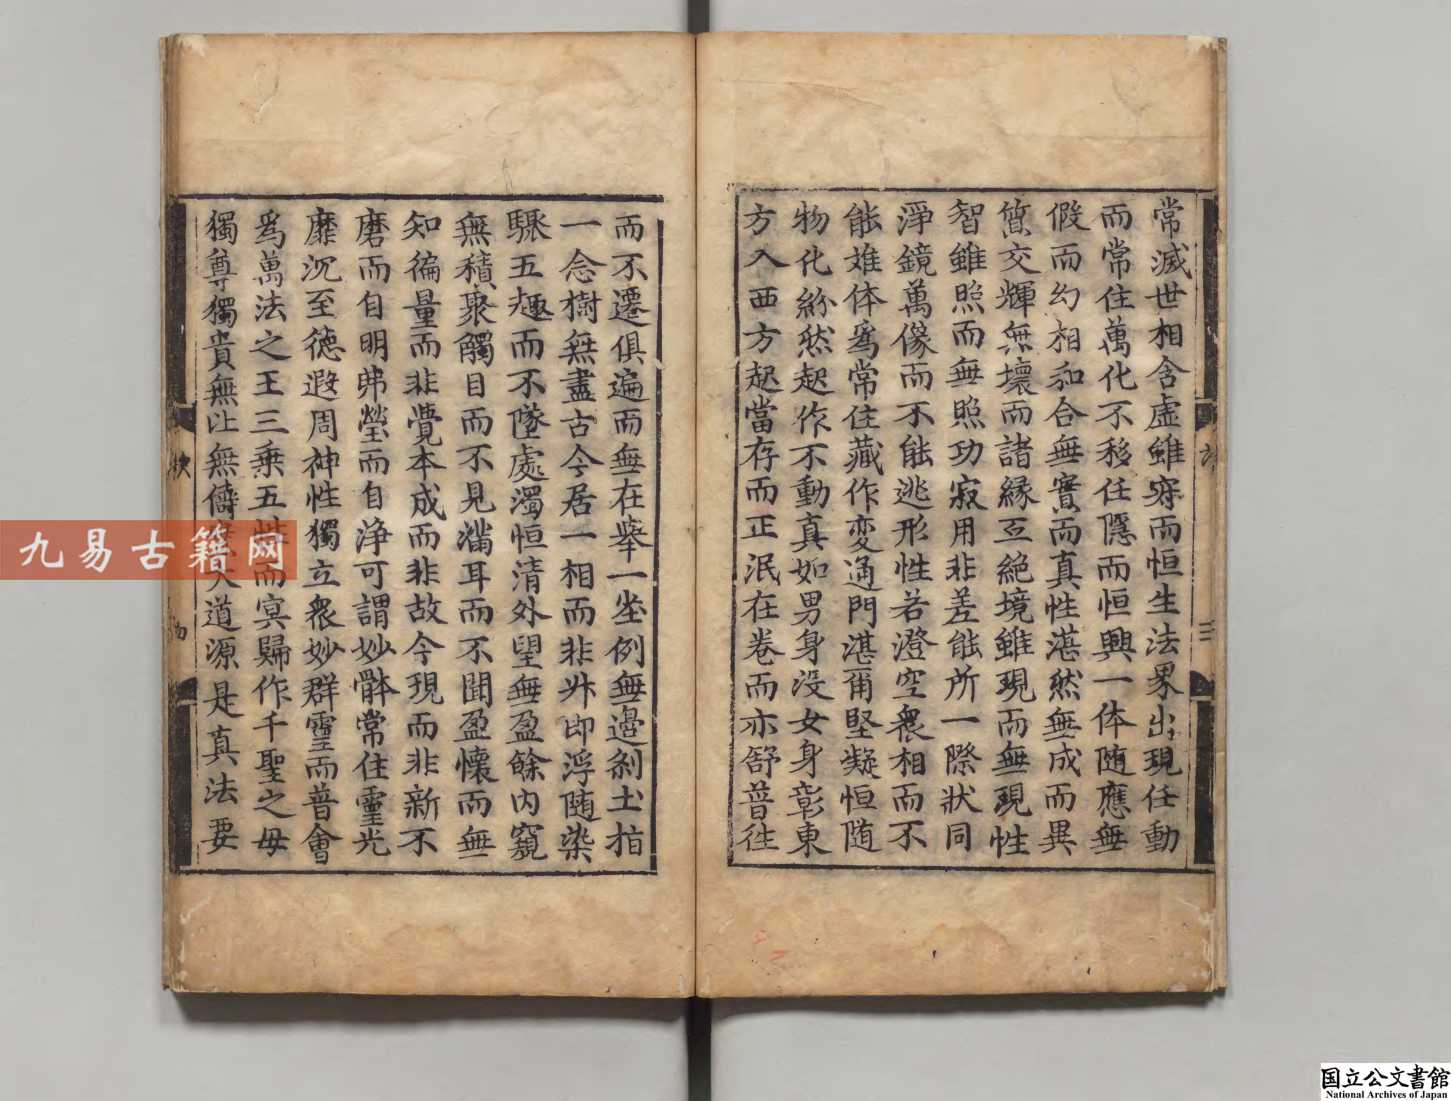 常滅世相含虛雖寂而恒生法界出現任動
而常住萬化不移任隱而恒興一体随應無
假而幻相和合無實而真性湛然無成而異
質交輝無壞而諸緣互絕境雖現而無現性
智雖照而無照功寂用非差能所一際狀同
淨鏡萬像而不能逃形性若澄空衆相而不
能虽体爲常住藏作变通門湛爾堅凝恒随
物化紛然起作不動真如男身没女身彰東
方入西方起當存而正泯在卷而亦舒普徃
而不遷俱遍而無在舉一坐例無邊刹土指
一念樹無盡古今居一相而非升即浮随染
驟五趣而不墜處濁恒清外望無盈餘内窺
無積聚觸目而不見滿耳而不聞盈懷而無
知徧量而非覺本成而非故今現而非新不
磨而自明弗瑩而自淨可謂妙體常住靈光
靡沉至德遐周神性獨立衆妙群靈而普會
爲萬法之王三乘五性而冥歸作千聖之母
獨尊獨貴無比無儔大道源是真法要
九易古籍网
国立公文書館
National Archives of Japan